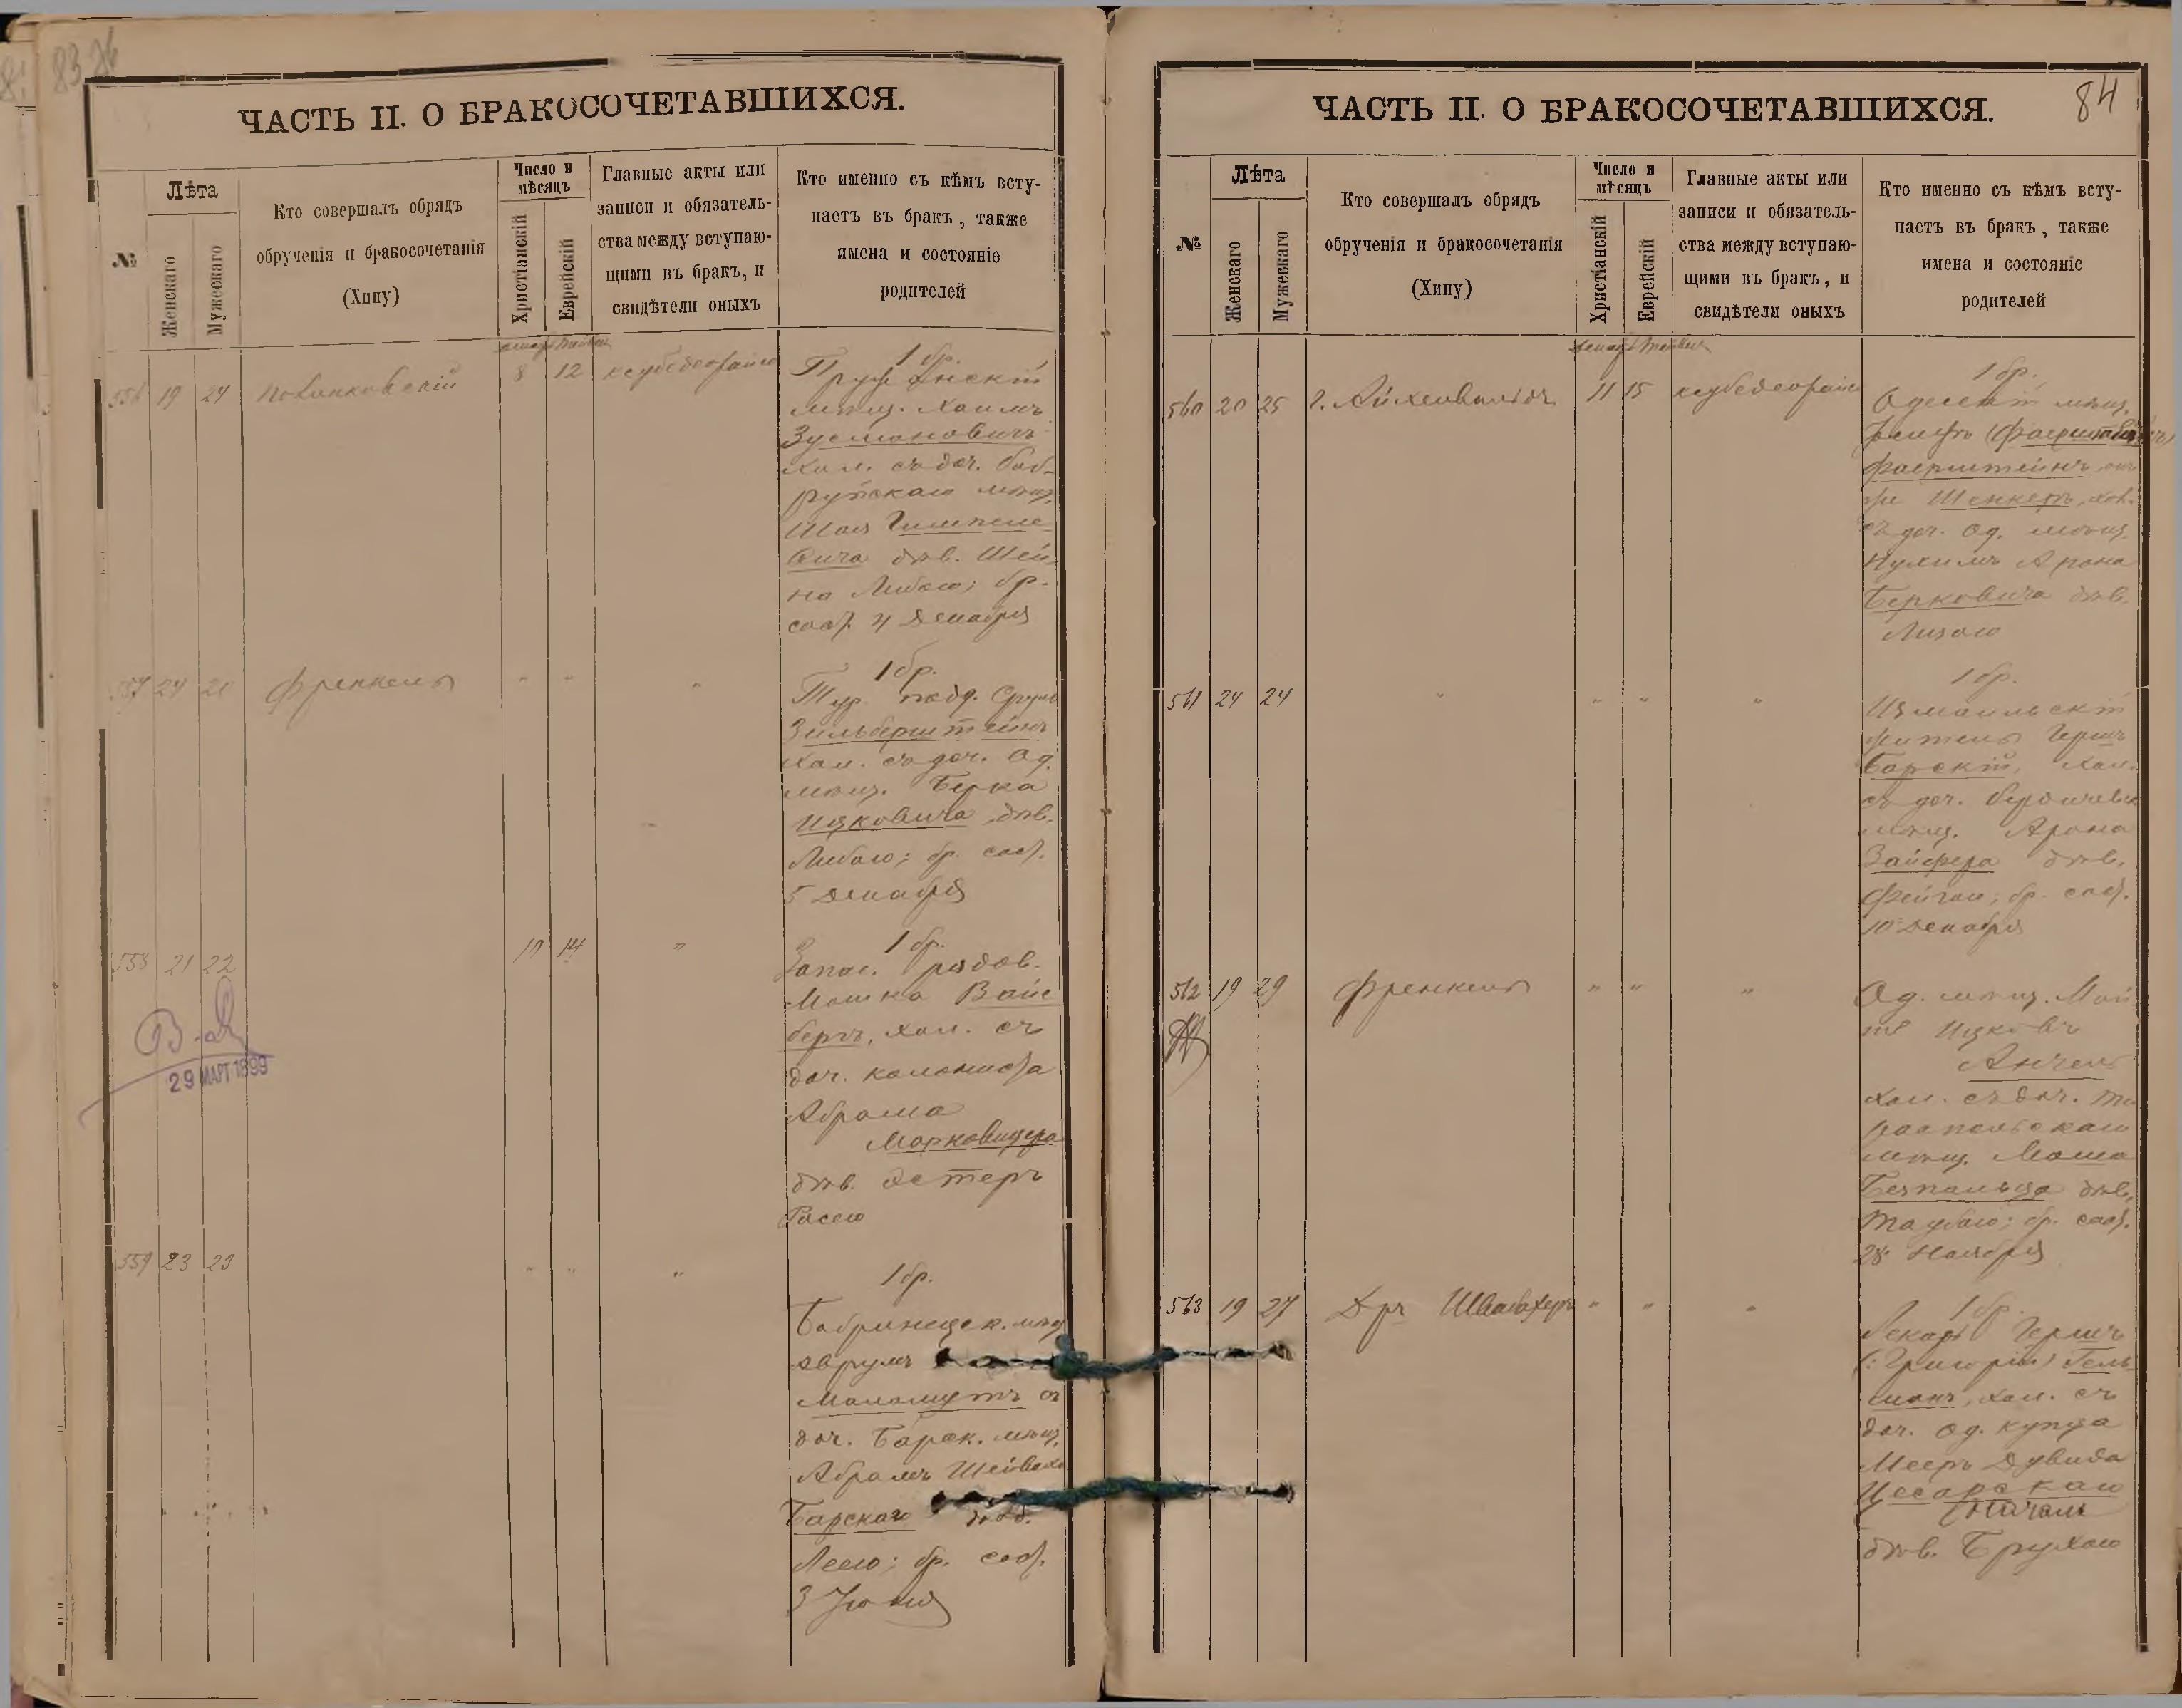 83
ЧАСТЬ II. О БРАКОСОЧЕТАВШИХСЯ.
№
Лѣта
Женскаго
Мужескаго
Кто совершалъ обрядъ
обрученія и бракосочетанія
(Хипу)
Число и
мѣсяцъ
Христіанскій
Еврейскій
Главные акты или
записи и обязатель-
ства между вступаю-
щими въ бракъ, и
свидѣтели оныхъ
Кто именно съ кѣмъ всту-
паетъ въ бракъ, также
имена и состояніе
родителей
556 19 24
8 12
1 бр.
мѣщ. Хаимъ
Зусмановичъ
хол. съ доч. Боб-
руйскаго мѣщ.
Шая Гимпеле-
вича дѣв. Шей-
на Либою; бр.
сост. 4 Декабря
557 24 20 Френкель " " "
1 бр.
Тур. подд. Сруль
Зильберштейнъ
хол. съ доч. Од.
мѣщ. Берка
Ицковича дѣв.
Либою; бр. сост.
5 Декабря
558 21 22
14 "
1 бр.
Запас. рядов.
Мошка Вайс
бергъ, хол. съ
доч. колониста
Абрама
Марковицера
дѣв. Эстеръ
Расею
29 МАРТ 1899
559 23 23 " " "
1 бр.
Бобринецк. мѣщ
Аврумъ
Маломутъ съ
доч. Барск. мѣщ.
Абрамъ
Барскаго дѣв.
Леею; бр. сост.
3 Іюня
84
ЧАСТЬ II. О БРАКОСОЧЕТАВШИХСЯ.
№
Лѣта
Женскаго
Мужескаго
Кто совершалъ обрядъ
обрученія и бракосочетанія
(Хипу)
Число и
мѣсяцъ
Христіанскій
Еврейскій
Главные акты или
записи и обязатель-
ства между вступаю-
щими въ бракъ, и
свидѣтели оныхъ
Кто именно съ кѣмъ всту-
паетъ въ бракъ, также
имена и состояніе
родителей
560 20 25 г. Айхенвальдъ 11 15
1 бр.
Одесскій мѣщ.
Фаерштейнъ, онъ
же Шенкеръ, хол.
съ доч. Од. мѣщ.
Нухимъ Арона
Берковича дѣв.
Лизою
561 24 24 " " " "
1 бр.
Измаильскій
житель Гершъ
Барскій, хол.
съ доч. Бердичевск.
мѣщ. Арона
Зайфера дѣв.
Фейгою; бр. сост.
10 Декабря
562 19 29 Френкель " " "
Од. мѣщ. Мой-
ше Ицковъ
Анчель
хол. съ доч. Ти-
распольскаго
мѣщ. Моша
Безпальца дѣв.
Таубою; бр. сост.
28 Ноября
563 19 27 Д-ръ Швабахеръ " " "
1 бр.
Лекарь Гершъ
(:Григорій) Гель-
манъ, хол. съ
доч. Од. купца
Мееръ Дувида
Цесарскаго
дѣв. Брухою